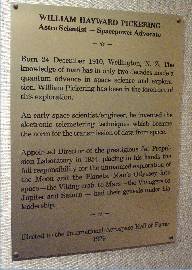 WILLIAM HAYWARD PICKERING
Astro Scientist — Spacepower Advocate
Born 24 December 1910, Wellington, N. Z. The
knowledge of man has in only two decades made a
quantum advance in space science and explora-
tion. William Pickering has been in the forefront of
this exploration.
An early space scientist/engineer, he invented the
electronic telemetering techniques which became
the norm for the transmission of data from space.
Appointed Director of the prestigious Jet Propul-
sion Laboratory in 1954, placing in his hands the
full responsibility for the unmanned exploration of
the Moon and the Planets. Man's Odyssey into
space—the Viking craft to Mars—the Voyagers of
Jupiter and Saturn — had their genesis under his
leadership.
Elected to the International Aerospace Hall of Fame